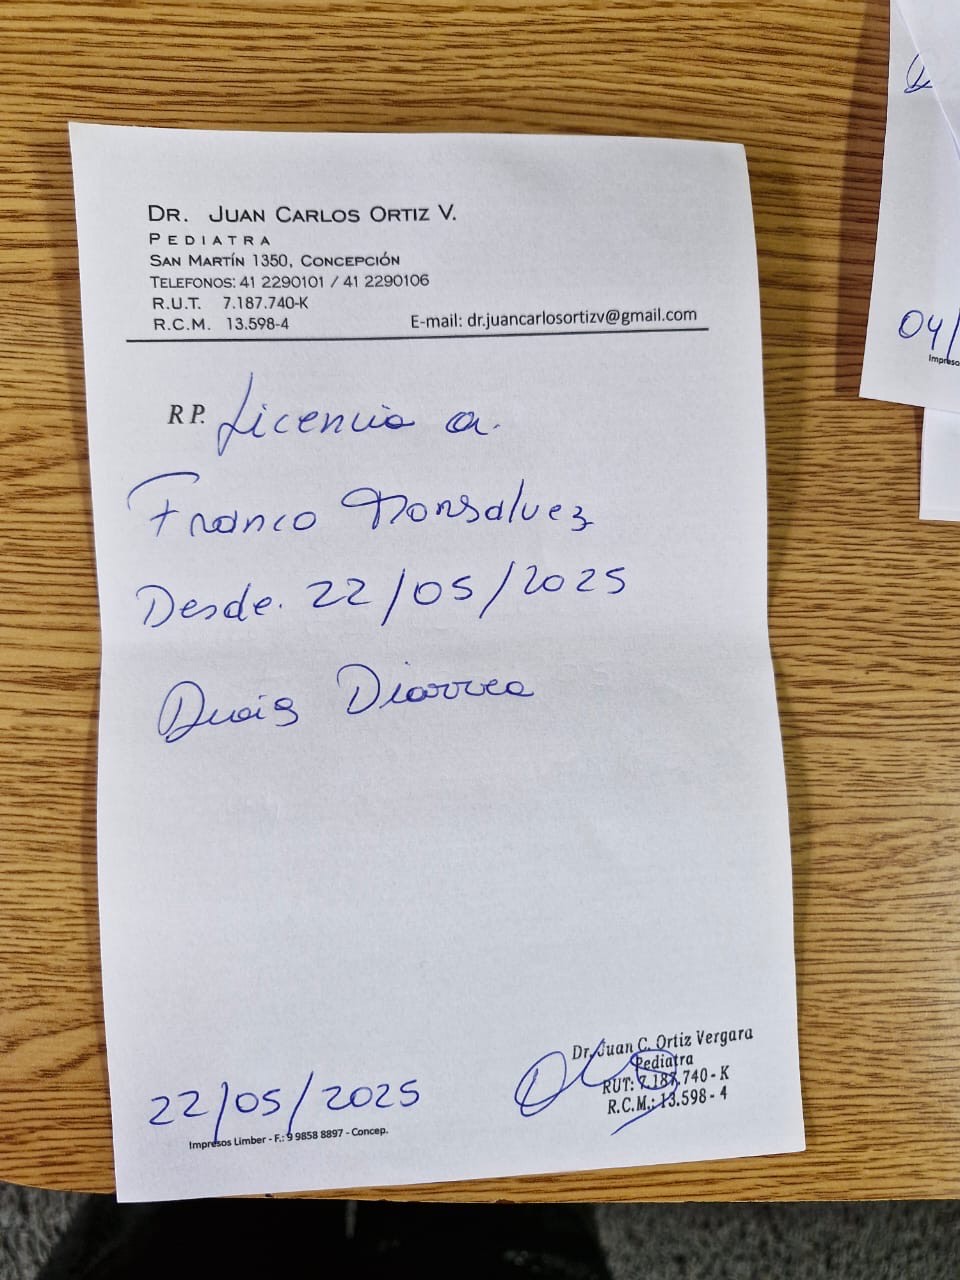 DR. JUAN CARLOS ORTIZ V.
PEDIATRA
SAN MARTÍN 1350, CONCEPCIÓN
TELEFONOS: 41 2290101 / 41 2290106
R.U.T. 7.187.740-K
R.C.M. 13.598-4
E-mail: dr.juancarlosortizv@gmail.com
RP. Licencia a.
Franco Monsalvez
Desde. 22/05/2025
Diarrea
Dr. Juan C. Ortiz Vergara
Pediatra
RUT: 7.187.740-K
R.C.M.: 13.598-4
22/05/2025
Impresos Limber - F.: 9 9858 8897 - Concep.
04/
Impreso